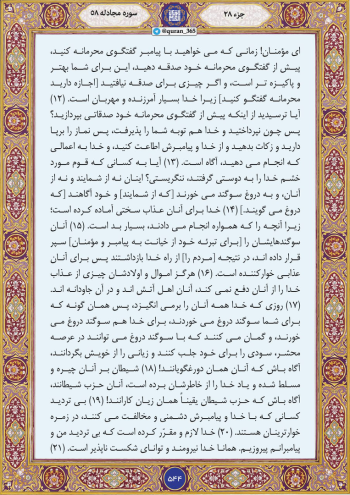 جزء ۲۸
سوره مجادله ۵۸
@quran_365
ای مؤمنان! زمانی که می خواهید با پیامبر گفتگوی محرمانه کنید،
پیش از گفتگوی محرمانه خود صدقه دهید، این برای شما بهتر
و پاکیزه تر است، و اگر چیزی برای صدقه نیافتید [اجازه دارید
محرمانه گفتگو کنید] زیرا خدا بسیار آمرزنده و مهربان است. (۱۲)
آیا ترسیدید از اینکه پیش از گفتگوی محرمانه خود صدقاتی بپردازید؟
پس چون نپرداختید و خدا هم توبه شما را پذیرفت، پس نماز را برپا
دارید و زکات بدهید و از خدا و پیامبرش اطاعت کنید، و خدا به اعمالی
که انجام می دهید، آگاه است. (۱۳) آیا به کسانی که قوم مورد
خشم خدا را به دوستی گرفتند، ننگریستی؟ اینان نه از شمایند و نه از
آنان، و به دروغ سوگند می خورند [که از شمایند] و خود آگاهند [که
دروغ می گویند.] (۱۴) خدا برای آنان عذاب سختی آماده کرده است؛
زیرا آنچه را که همواره انجام می دادند، بسیار بد است. (۱۵) آنان
سوگندهایشان را [برای تبرئه خود از خیانت به پیامبر و مؤمنان] سپر
قرار داده اند، در نتیجه [مردم را] از راه خدا بازداشتند پس برای آنان
عذابی خوارکننده است. (۱۶) هرگز اموال و اولادشان چیزی از عذاب
خدا را از آنان دفع نمی کند، آنان اهل آتش اند و در آن جاودانه اند.
(۱۷) روزی که خدا همه آنان را برمی انگیزد، پس همان گونه که
برای شما سوگند دروغ می خوردند، برای خدا هم سوگند دروغ می
خورند، و گمان می کنند که با سوگند دروغ می توانند در عرصه
محشر، سودی را برای خود جلب کنند و زیانی را از خویش بگردانند،
آگاه باش که آنان همان دورغگویانند! (۱۸) شیطان بر آنان چیره و
مسلط شده و یاد خدا را از خاطرشان برده است، آنان حزب شیطانند،
آگاه باش که حزب شیطان یقیناً همان زیان کارانند! (۱۹) بی تردید
کسانی که با خدا و پیامبرش دشمنی و مخالفت می کنند، در زمره
خوارترینان هستند. (۲۰) خدا لازم و مقرّر کرده است که بی تردید من و
پیامبرانم پیروزیم. همانا خدا نیرومند و توانای شکست ناپذیر است. (۲۱)
۵۴۴